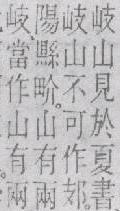 岐山見於夏書
岐山不可作
陽縣畍。山有兩
岐。當作山有兩